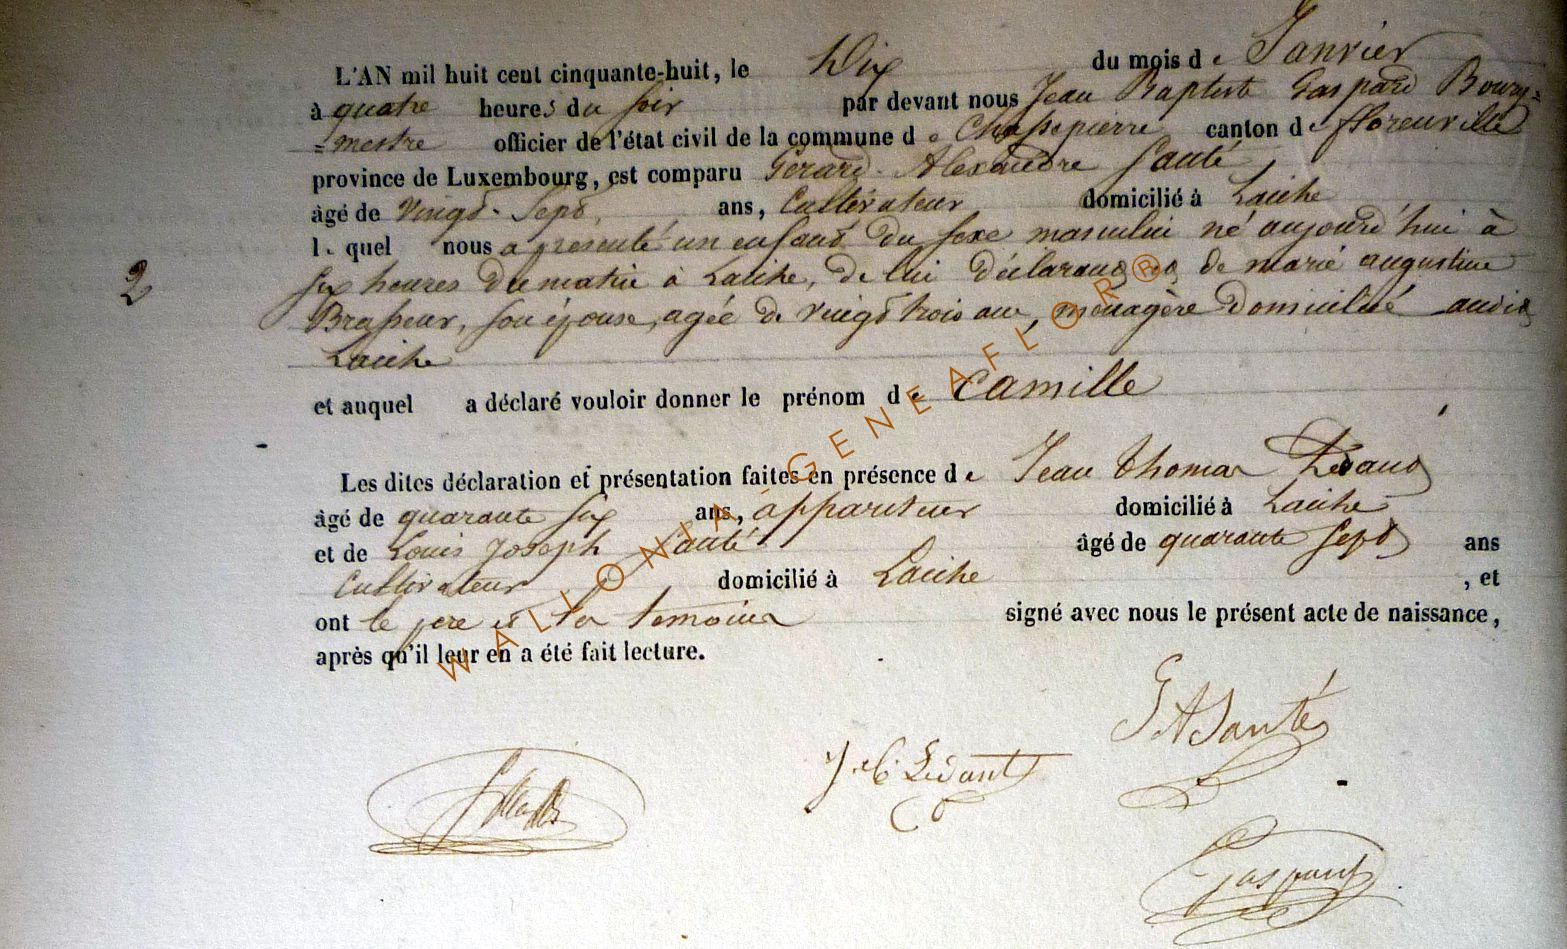 L'AN mil huit cent cinquante-huit, le Dix du mois de Janvier
à quatre heures du soir par devant nous Jean Baptiste Gaspard Bourg=
=mestre officier de l'état civil de la commune de Chassepierre canton de fflorenville
province de Luxembourg, est comparu Gérard Alexandre Santé,
âgé de vingt-Sept ans, Cultivateur domicilié à Laiche
lequel nous a présenté un enfant du sexe masculin né aujourd'hui à
six heures du matin à Laiche, de lui déclarant et de marie augustine
2
Brasseur, son épouse, agée de vingt trois ans, ménagère domiciliée audit
Laiche
et auquel a déclaré vouloir donner le prénom de Camille
Les dites déclaration et présentation faites en présence de Jean thomas
âgé de quarante six ans, appariteur domicilié à Laiche
et de Louis Joseph Santé âgé de quarante Sept ans
Cultivateur domicilié à Laiche , et
ont le père et les témoins signé avec nous le présent acte de naissance,
après qu'il leur en a été fait lecture.
G A Santé
Gaspard
WALLONIA GENEAFLOR®